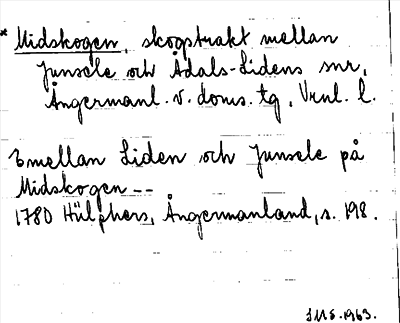 * Midskogen, skogstrakt mellan
Junsele och Ådals-Lidens snr,
Ångermanl. v. doms. tg, Vnl. l.
Emellan Liden och Junsele på
Midskogen --
1780 Hülphers, Ångermanland, s. 198.
1963.